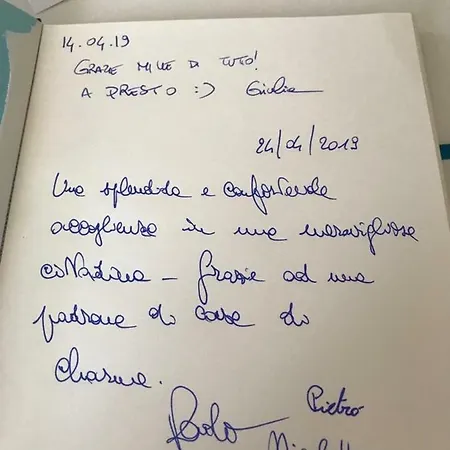 14.04.19
GRAZIE MILLE DI TUTTO!
A PRESTO :) Giulia
24/04/2019
Una splendida e confortevole
accoglienza in una meravigliosa
cittadina - Grazie ad una
padrona di casa di
charme.
Pietro
Paolo